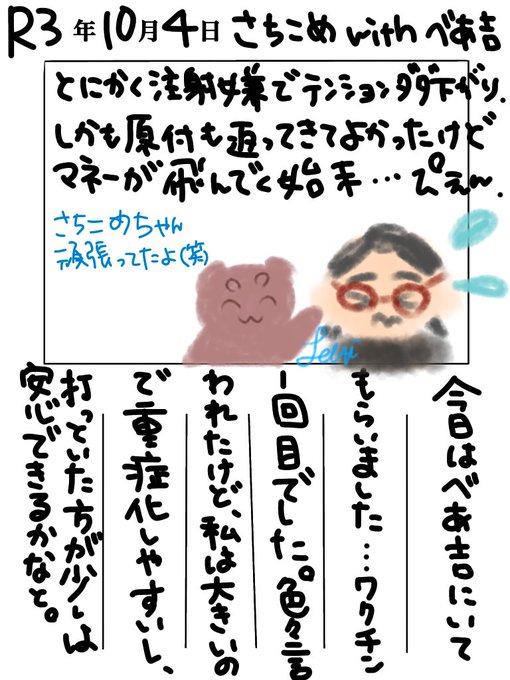 R3年10月4日 さちこめ with べあ吉
とにかく注射嫌でテンションダダ下がり.
しかも原付も返ってきてよかったけど
マネーが飛んでく始末…ぴえ〜.
さちこめちゃん
頑張ってたよ(笑)
Lelri
今日はべあ吉にいて
もらいました…ワクチン
一回目でした。色々言
われたけど、私は大きいの
で重症化しやすいし、
打っといた方が少しは
安心できるかなと。